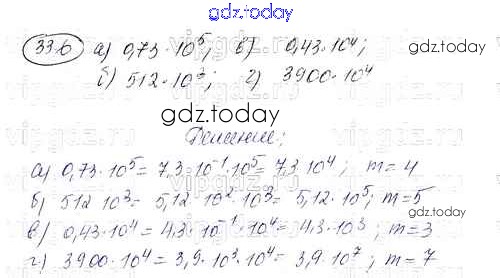 gdz.today
33.6 а) 0,73·10⁵; в) 0,43·10⁴;
gdz.today
б) 512·10³; г) 3900·10⁴
gdz.today
Решение:
а) 0,73·10⁵ = 7,3·10⁻¹·10⁵ = 7,3·10⁴; m = 4
б) 512·10³ = 5,12·10²·10³ = 5,12·10⁵; m = 5
gdz.today
в) 0,43·10⁴ = 4,3·10⁻¹·10⁴ = 4,3·10³; m = 3
г) 3900·10⁴ = 3,9·10³·10⁴ = 3,9·10⁷; m = 7